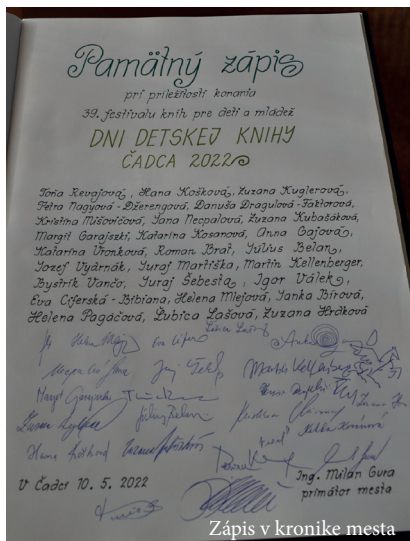 Pamätný zápis
pri príležitosti konania
39. festivalu kníh pre deti a mládež
DNI DETSKEJ KNIHY
ČADCA 2022
Toňa Revajová, Hana Košková, Zuzana Kuglerová,
Petra Nagyová-Džerengová, Danuša Dragulová-Faktorová,
Kristína Mišovičová, Jana Necpalová, Zuzana Kubašáková,
Margit Garajszki, Katarína Kosanová, Anna Gajová,
Katarína Vronková, Roman Brat, Július Belan,
Jozef Vyárnák, Juraj Martiška, Martin Kellenberger,
Bystrík Vančo, Juraj Šebesta, Igor Válek,
Eva Cíferská - Bibiana, Helena Mlejová, Janka Bírová,
Helena Pagáčová, Ľubica Lašová, Zuzana Hrčková
V Čadci 10. 5. 2022
Ing. Milan Gura
primátor mesta
Zápis v kronike mesta